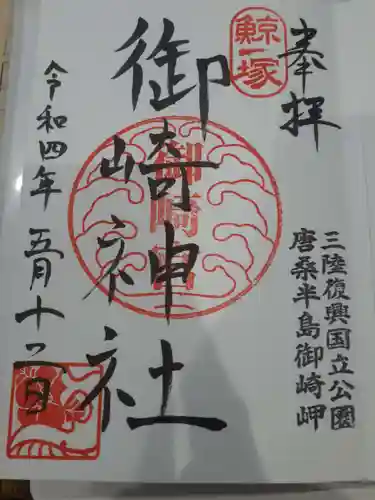 奉拝
鯨塚
三陸復興国立公園
唐桑半島御崎岬
御崎神社
令和四年五月十一日